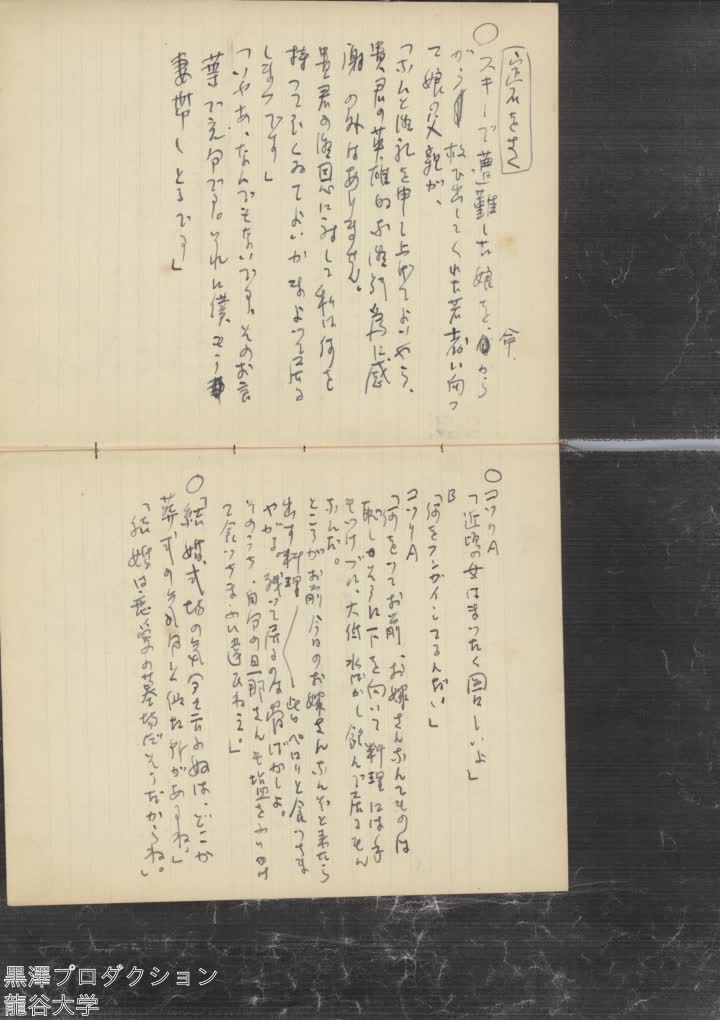 ○スキーで遭難した娘を、命から
がら 救ひ出してくれた若者に向つ
て娘の父親が、
「なんと御礼を申し上げてよいやら、
貴君の英雄的な御行為に感
謝の外はありません。
貴君の御恩に対して私は何を
持つてむくゐてよいか
しまつです」
「いやあ、なんでもないです。そのお言
葉で充分です。それに僕、もう
妻帯しとるです」
○コックA
「近頃の女はまつたく図々しいよ」
B
「何をフンガイしてるんだい」
コックA
「何をつてお前、お嫁さんなんてものは
恥しさうに下を向いて料理には手
もつけづに、大低水ばかし飲んで居るもん
なんだ。
ところがお前今日のお嫁さんなんぞと来たら
出す料理 皆ペロリと食つちま
やがる。残つて居るのは骨ばかしよ。
そのうち、自分の旦那さんも塩をふりかけ
て食つちまふに違ひねえ。」
○「結婚式場の気分と云ふ奴は、どこか
葬式の気分と似た所があるね」
「結婚は恋愛の墓場ださうだからね。」
黒澤プロダクション
龍谷大学